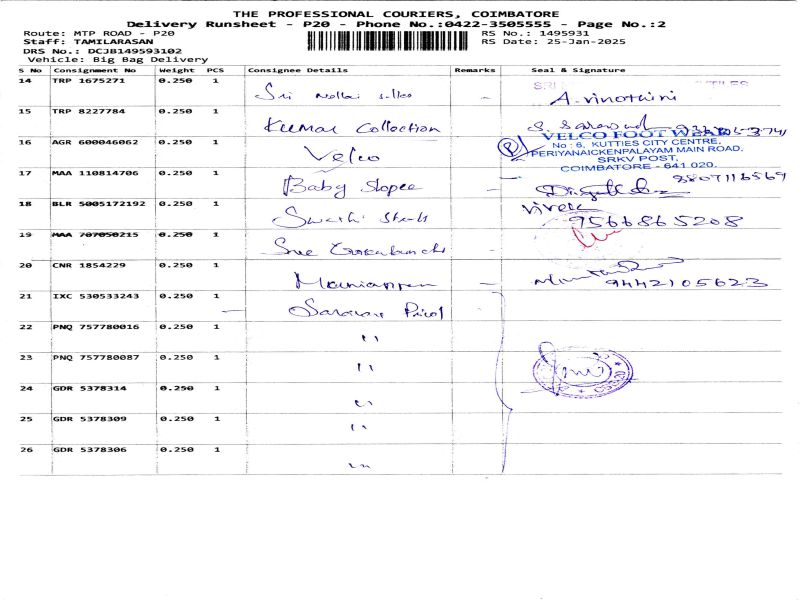 THE PROFESSIONAL COURIERS, COIMBATORE
Delivery Runsheet - P20 - Phone No.:0422-3505555 - Page No.:2
Route: MTP ROAD - P20
Staff: TAMILARASAN
DRS No.: DCJB149593102
Vehicle: Big Bag Delivery
RS No.: 1495931
RS Date: 25-Jan-2025
S No Consignment No Weight PCS Consignee Details Remarks Seal & Signature
14 TRP 1675271 0.250 1 Sri - A. Vinothini
15 TRP 8227784 0.250 1 Kumar Collection
16 AGR 600046062 0.250 1 Velco
VELCO FOOT WEAR
No : 6, KUTTIES CITY CENTRE,
PERIYANAICKENPALAYAM MAIN ROAD,
SRKV POST,
COIMBATORE - 641 020.
17 MAA 110814706 0.250 1 Baby Shopee - 9807116569
18 BLR 5005172192 0.250 1 Swathi Vivek 9566865208
19 MAA 707050215 0.250 1 Sree
20 CNR 1854229 0.250 1 - 9442105623
21 IXC 530533243 0.250 1 Saravan
22 PNQ 757780016 0.250 1 "
23 PNQ 757780087 0.250 1 "
24 GDR 5378314 0.250 1 "
25 GDR 5378309 0.250 1 "
26 GDR 5378306 0.250 1 "